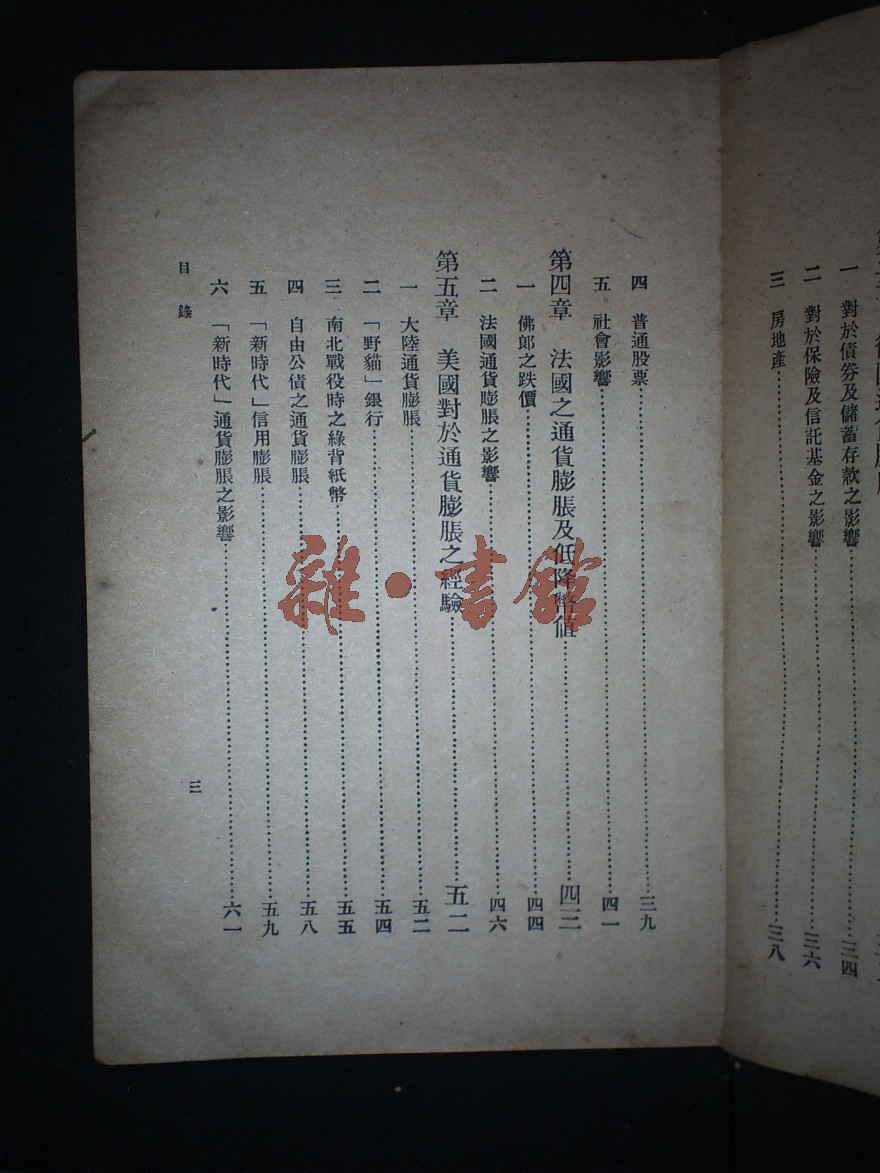 一 對於債券及儲蓄存款之影響……三四
二 對於保險及信託基金之影響……三六
三 房地產……三八
四 普通股票……三九
五 社會影響……四一
第四章 法國之通貨膨脹及低降幣值……四三
一 佛郎之跌價……四四
二 法國通貨膨脹之影響……四六
第五章 美國對於通貨膨脹之經驗……五二
一 大陸通貨膨脹……五二
二 「野貓」銀行……五四
三 南北戰役時之綠背紙幣……五五
四 自由公債之通貨膨脹……五八
五 「新時代」信用膨脹……五九
六 「新時代」通貨膨脹之影響……六一
目錄
三
雜·書館